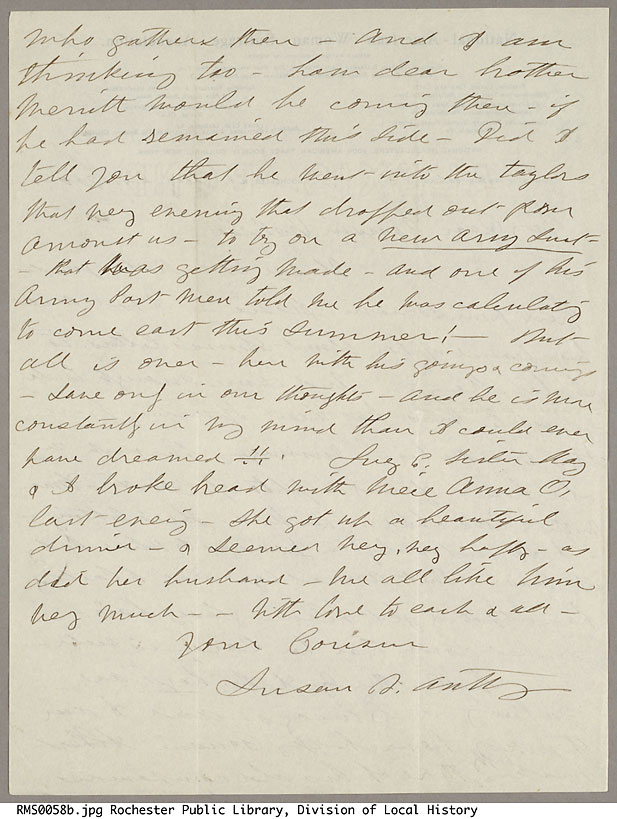 who gathers then - and I am
thinking too - how dear brother
Merritt would be coming then - if
he had remained this side - Did I
tell you that he went into the taylors
that very evening that dropped out from
amongst us - to try on a new Army Suit -
- that was getting made - and one of his
Army Post men told me he was calculating
to come east this summer! - But
all is over - here with his goings & comings
- save only in our thoughts - and he is more
constantly in my mind than I could ever
have dreamed -!!. Lucy E. sister Mary
& I broke bread with niece Anna O.
last evening - She got up a beautiful
dinner - & seemed very, very happy - as
did her husband - We all like him
very much - - With love to each & all -
Your Cousin
Susan B. Anthony
RMS0058b.jpg Rochester Public Library, Division of Local History